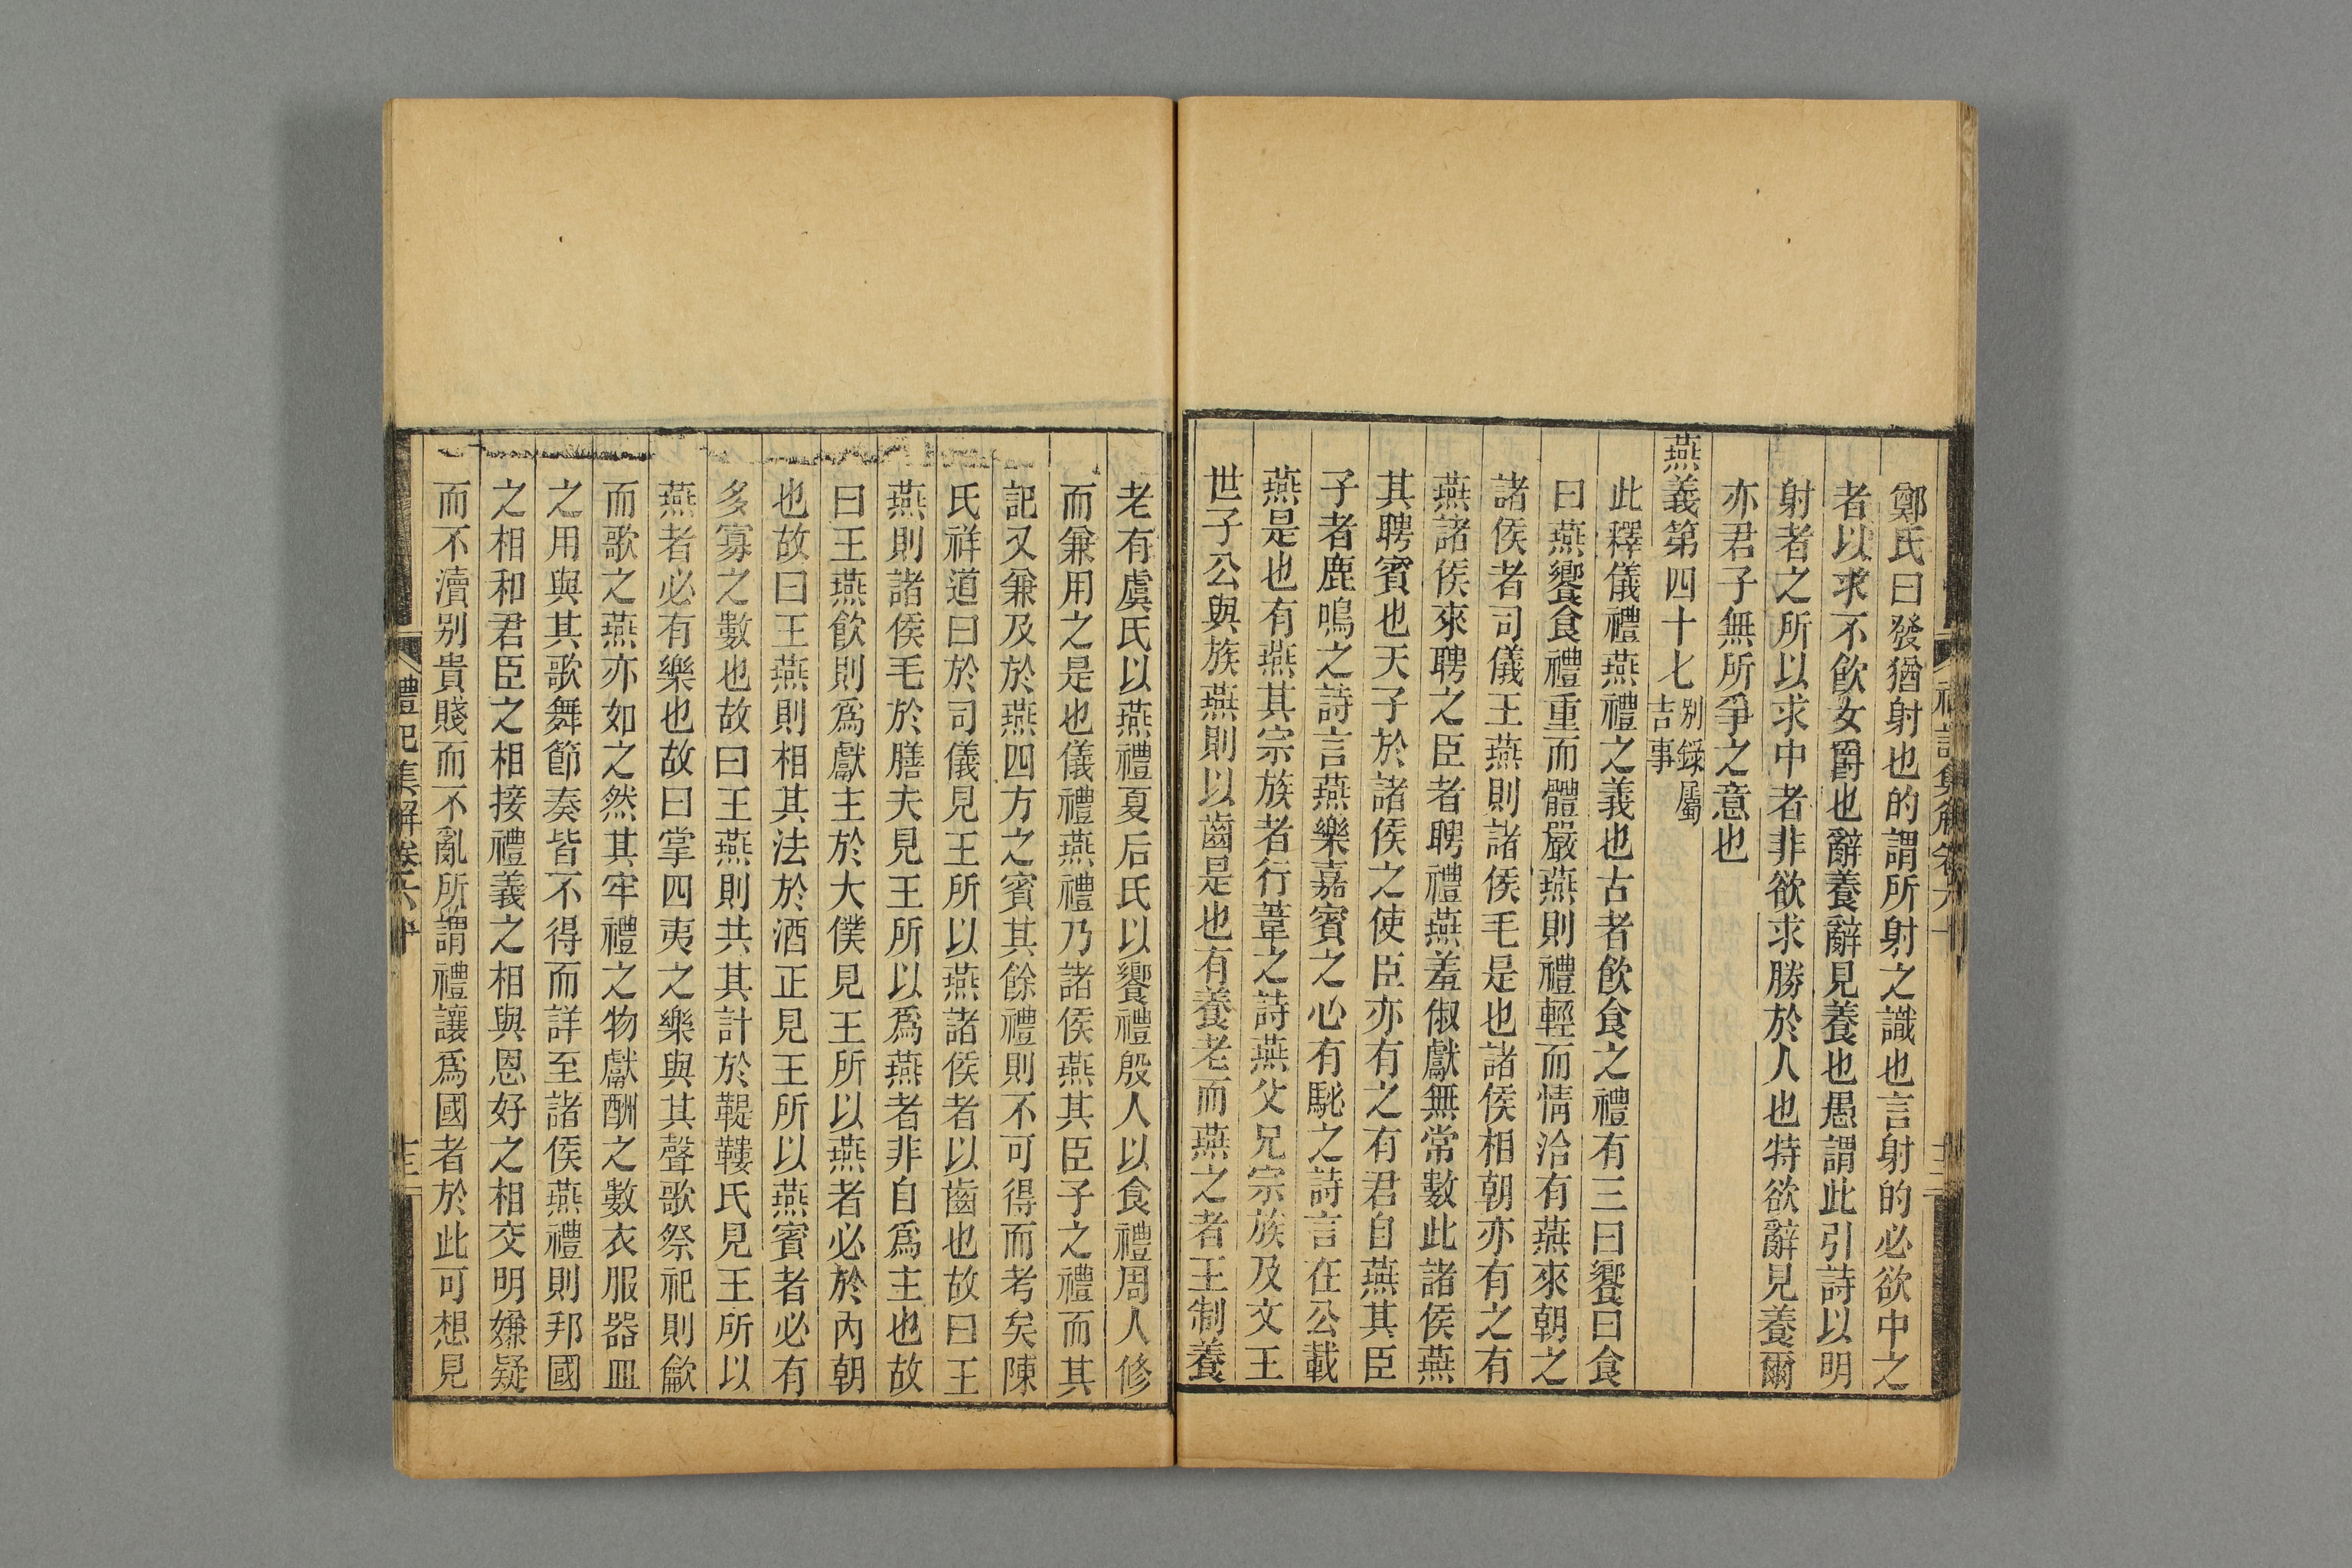 鄭氏曰發猶射也的謂所射之識也言射的必欲中之
者以求不飲女爵也辭養辭見養也愚謂此引詩以明
射者之所以求中者非欲求勝於人也特欲辭見養爾
亦君子無所爭之意也
燕義第四十七別錄屬吉事
此釋儀禮燕禮之義也古者飲食之禮有三曰饗曰食
曰燕饗食禮重而體嚴燕則禮輕而情洽有燕來朝之
諸侯者司儀王燕則諸侯毛是也諸侯相朝亦有之有
燕諸侯來聘之臣者聘禮燕羞俶獻無常數此諸侯燕
其聘賓也天子於諸侯之使臣亦有之有君自燕其臣
子者鹿鳴之詩言燕樂嘉賓之心有駜之詩言在公載
燕是也有燕其宗族者行葦之詩燕父兄宗族及文王
世子公與族燕則以齒是也有養老而燕之者王制養
老有虞氏以燕禮夏后氏以饗禮殷人以食禮周人修
而兼用之是也儀禮燕禮乃諸侯燕其臣子之禮而其
記又兼及於燕四方之賓其餘禮則不可得而考矣陳
氏祥道曰於司儀見王所以燕諸侯者以齒也故曰王
燕則諸侯毛於膳夫見王所以爲燕者非自爲主也故
曰王燕飲則爲獻主於大僕見王所以燕者必於內朝
也故曰王燕則相其法於酒正見王所以燕賓者必有
多寡之數也故曰王燕則共其計於鞮鞻氏見王所以
燕者必有樂也故曰掌四夷之樂與其聲歌祭祀則龡
而歌之燕亦如之然其牢禮之物獻酬之數衣服器皿
之用與其歌舞節奏皆不得而詳至諸侯燕禮則邦國
之相和君臣之相接禮義之相與恩好之相交明嫌疑
而不瀆別貴賤而不亂所謂禮讓爲國者於此可想見
禮記集解卷六十